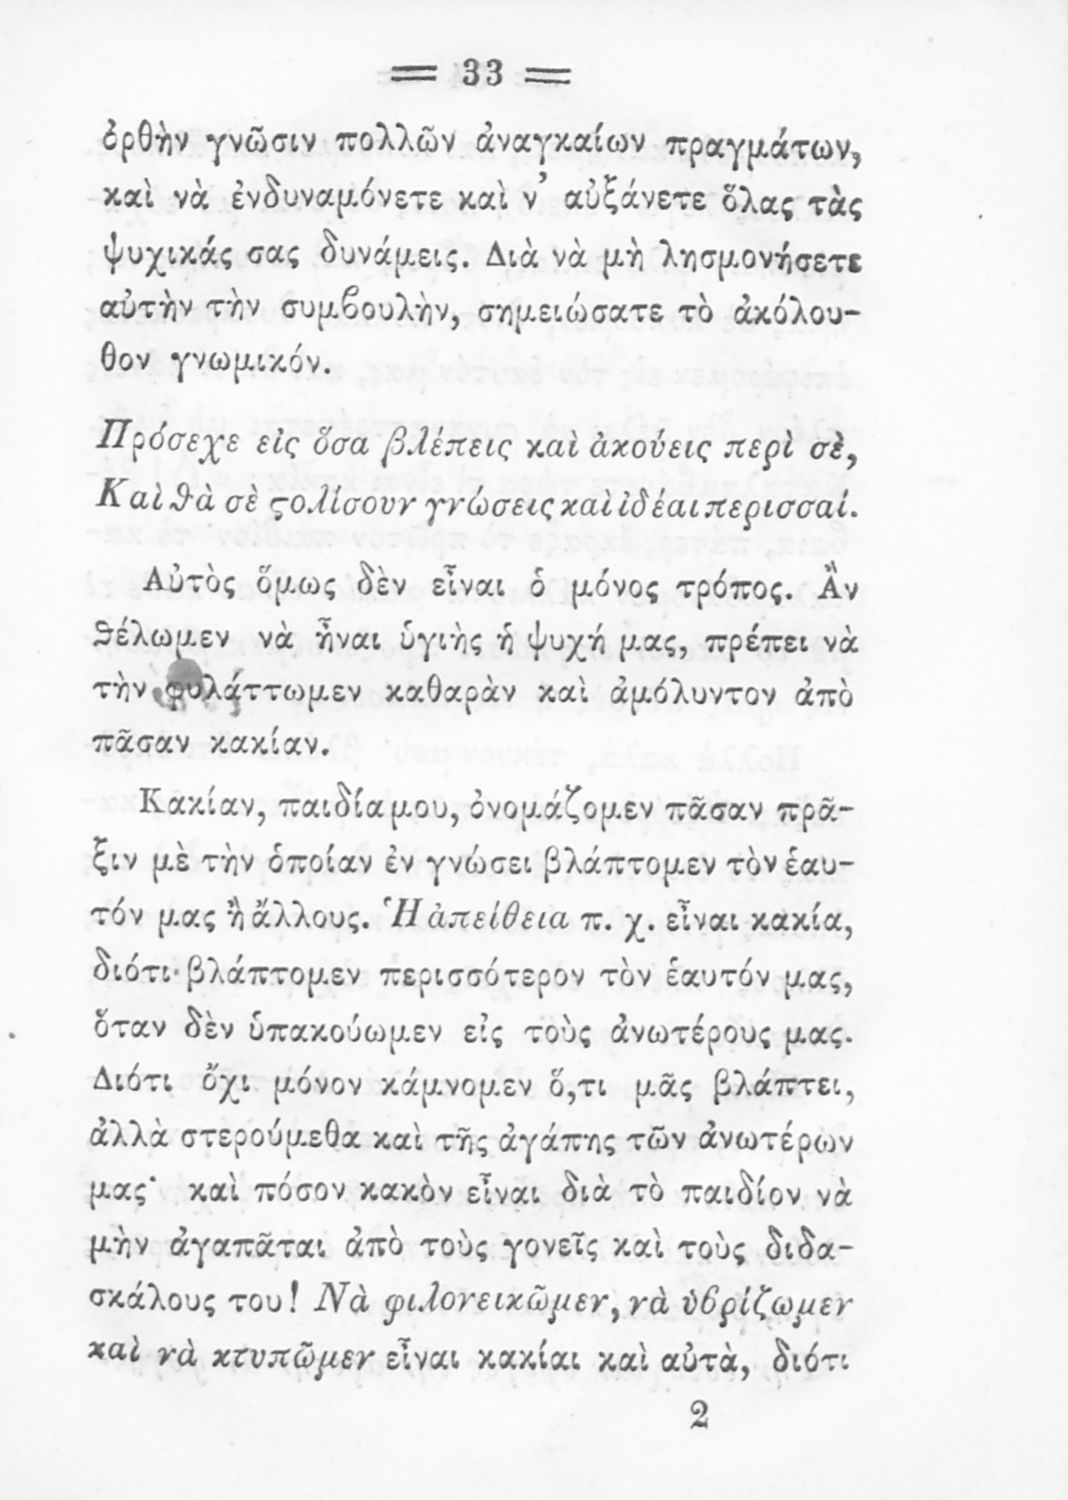 = 33 =
ὀρθὴν γνῶσιν πολλῶν ἀναγκαίων πραγμάτων,
καὶ νὰ ἐνδυναμόνετε καὶ ν’ αὐξάνετε ὅλας τὰς
ψυχικάς σας δυνάμεις. Διὰ νὰ μὴ λησμονήσετε
αὐτὴν τὴν συμϐουλὴν, σημειώσατε τὸ ἀκόλου-
θον γνωμικόν.
Πρόσεχε εἰς ὅσα βλέπεις καὶ ἀκούεις περὶ σὲ,
Καὶ θὰ σὲ ϛολίσουν γνώσεις καὶ ἰδέαι περισσαί.
Αὐτὸς ὅμως δὲν εἶναι ὁ μόνος τρόπος. Ἂν
θέλωμεν νὰ ἦναι ὑγιὴς ἡ ψυχή μας, πρέπει νὰ
τὴν φυλάττωμεν καθαρὰν καὶ ἀμόλυντον ἀπὸ
πᾶσαν κακίαν.
Κακίαν, παιδία μου, ὀνομάζομεν πᾶσαν πρᾶ-
ξιν μὲ τὴν ὁποίαν ἐν γνώσει βλάπτομεν τὸν ἑαυ-
τόν μας ἢ ἄλλους. Ἡ ἀπείθεια π. χ. εἶναι κακία,
διότι βλάπτομεν περισσότερον τὸν ἑαυτόν μας,
ὅταν δὲν ὑπακούωμεν εἰς τοὺς ἀνωτέρους μας.
Διότι ὄχι μόνον κάμνομεν ὅ,τι μᾶς βλάπτει,
ἀλλὰ στερούμεθα καὶ τῆς ἀγάπης τῶν ἀνωτέρων
μας· καὶ πόσον κακὸν εἶναι διὰ τὸ παιδίον νὰ
μὴν ἀγαπᾶται ἀπὸ τοὺς γονεῖς καὶ τοὺς διδα-
σκάλους του! Νὰ φιλονεικῶμεν, νὰ ὑϐρίζωμεν
καὶ νὰ κτυπῶμεν εἶναι κακίαι καὶ αὐτὰ, διότι
2